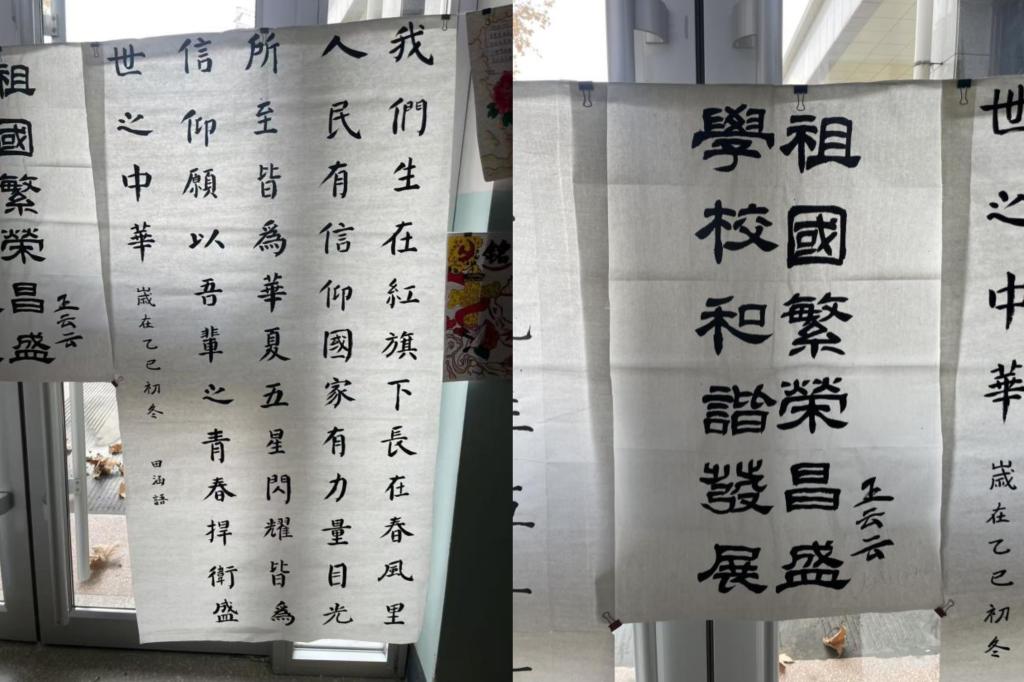 我們生在紅旗下長在春風里
人民有信仰國家有力量目光
所至皆爲華夏五星閃耀皆爲
信仰願以吾輩之青春捍衛盛
世之中華
歲在乙巳初冬
田涵語
王云云
祖國繁榮昌盛
世之中華
歲在乙巳初冬
王云云
祖國繁榮昌盛
學校和諧發展